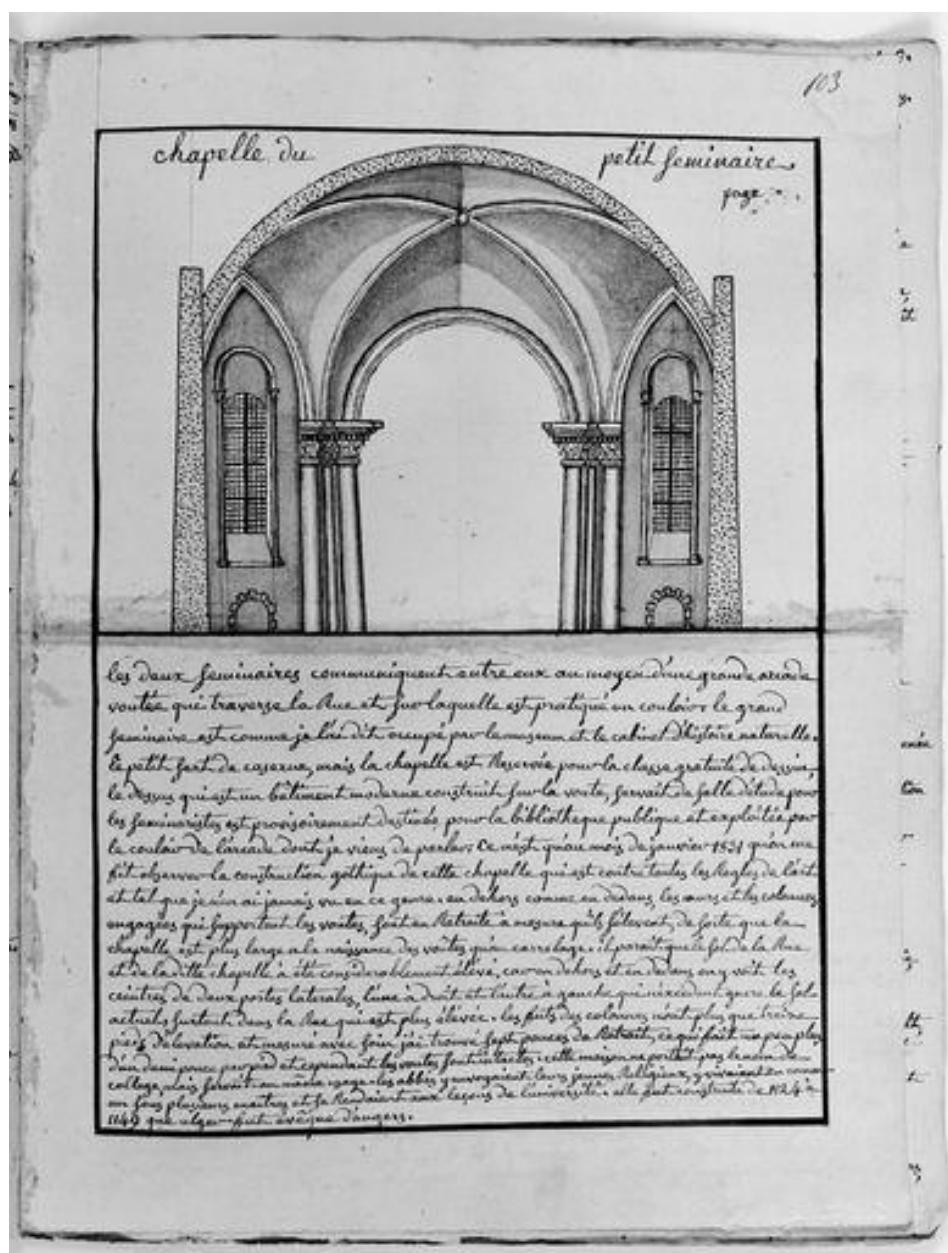 103
chapelle du petit seminaire
page
les deux seminaires communiquent entre eux au moyen d'une grande arcade
voutée qui traverse la Rue et sur laquelle est pratiqué un couloir le grand
seminaire est comme je l'ai dit occupé par le museum et le cabinet d'histoire naturelle.
le petit sert de caserne, mais la chapelle est Reservée pour la classe gratuite de dessin,
le dessus qui est un bâtiment moderne construit sur la voute, servait de salle d'étude pour
les seminaristes est provisoirement destinée pour la bibliotheque publique et exploitée par
le couloir de l'arcade dont je viens de parler. Ce n'est qu'au mois de janvier 1831 qu'on me
fit observer la construction gothique de cette chapelle qui est contre toutes les Regles de l'art
et tel que je n'en ai jamais vu en ce genre. en dehors comme en dedans, les murs et les colonnes
engagées qui supportent les voutes, sont en Retraite à mesure qu'ils s'elevent, de sorte que la
chapelle est plus large a la naissance des voutes qu'au carrelage. il parait que le sol de la Rue
et de la ditte chapelle a été considerablement élevé, car en dehors et en dedans on y voit les
ceintres de deux portes laterales, l'une à droit et l'autre à gauche qui n'excedent guere le sol
actuel surtout dans la Rue qui est plus élevée. les futs des colonnes n'ont plus que treize
pieds d'elevation et mesuré avec soin j'ai trouvé sept pouces de Retrait, ce qui fait un peu plus
d'un demi pouce par pied et cependant les voutes sont intactes. cette maison ne portait pas le nom de
college, mais servait au même usage. les abbés y envoyaient leurs jeunes Religieux, y vivaient en commun
sous plusieurs maitres et se Rendaient aux leçons de l'université. elle fut construite de 1124 à
1149 que ulger fut évêque d'angers.